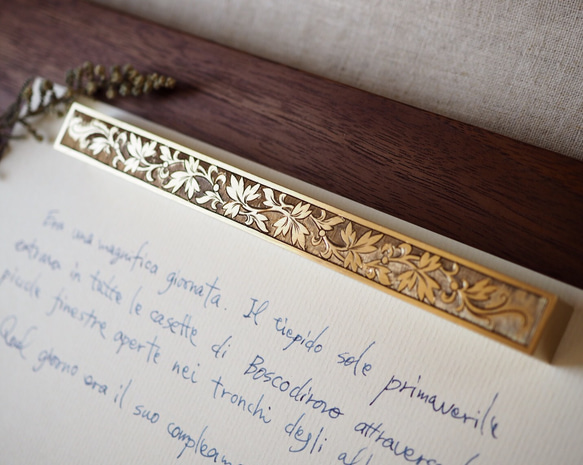 Era una magnifica giornata. Il tiepido sole primaverile
entrava in tutte le casette di Boscodirovo attraverso le
piccole finestre aperte nei tronchi degli
Quel giorno era il suo